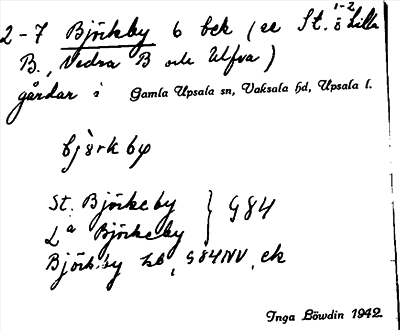 2-7 Björkby 6 bek (se St. 1-2 o Lilla
B., Vedra B och Ulfva)
gårdar i Gamla Upsala sn, Vaksala hd, Upsala l.
bjò̈rkby
St. Björkeby } G84
La Björkeby
Björkby kb, G84NV, ek
Inga Löwdin 1942.